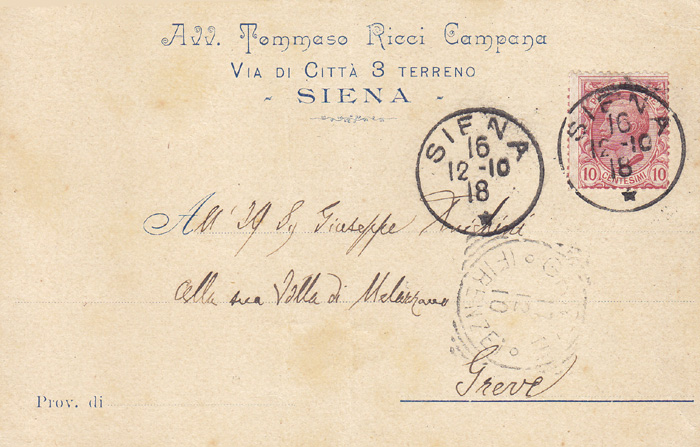 Avv. Tommaso Ricci Campana
VIA DI CITTÀ 3 TERRENO
- SIENA -
SIENA
16
12-10
18
SIENA
16
12-10
18
10 CENTESIMI 10
All' Giuseppe
alla sua Villa di
(FIRENZE)
12
10
Greve
Prov. di